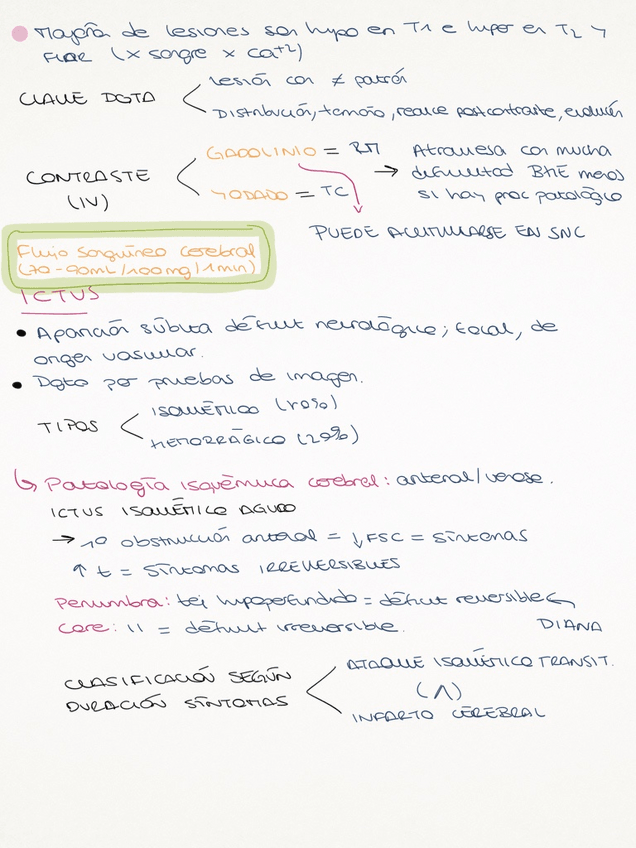 Mayoría de lesiones son hypo en T1 e hiper en T2 y
FLAIR (x sangre x Ca+2)
CLAVE DGTA
Lesión con ≠ patrón
Distribución, tamaño, realce postcontraste, evolución
CONTRASTE
(IV)
GADOLINIO = RM
YODADO = TC
→ Atraviesa con mucha
dificultad BHE menos
si hay proc patológico
PUEDE ACUMULARSE EN SNC
Flujo sanguíneo cerebral
(70-90mL/100mg/1min)
ICTUS
• Aparición súbita déficit neurológico; focal, de
origen vascular.
• Dgto por pruebas de imagen.
TIPOS
ISQUÉMICO
HEMORRÁGICO (20%)
↳ Patología isquémica cerebral: arterial/venosa.
ICTUS ISQUÉMICO AGUDO
→ 1º obstrucción arterial = ↓FSC = síntomas
↑ t = SÍNTOMAS IRREVERSIBLES
Penumbra: tej hipoperfundido = déficit reversible
Core: 11 = déficit irreversible.
DIANA
CLASIFICACIÓN SEGÚN
DURACIÓN SÍNTOMAS
ATAQUE ISQUÉMICO TRANSIT.
INFARTO CEREBRAL